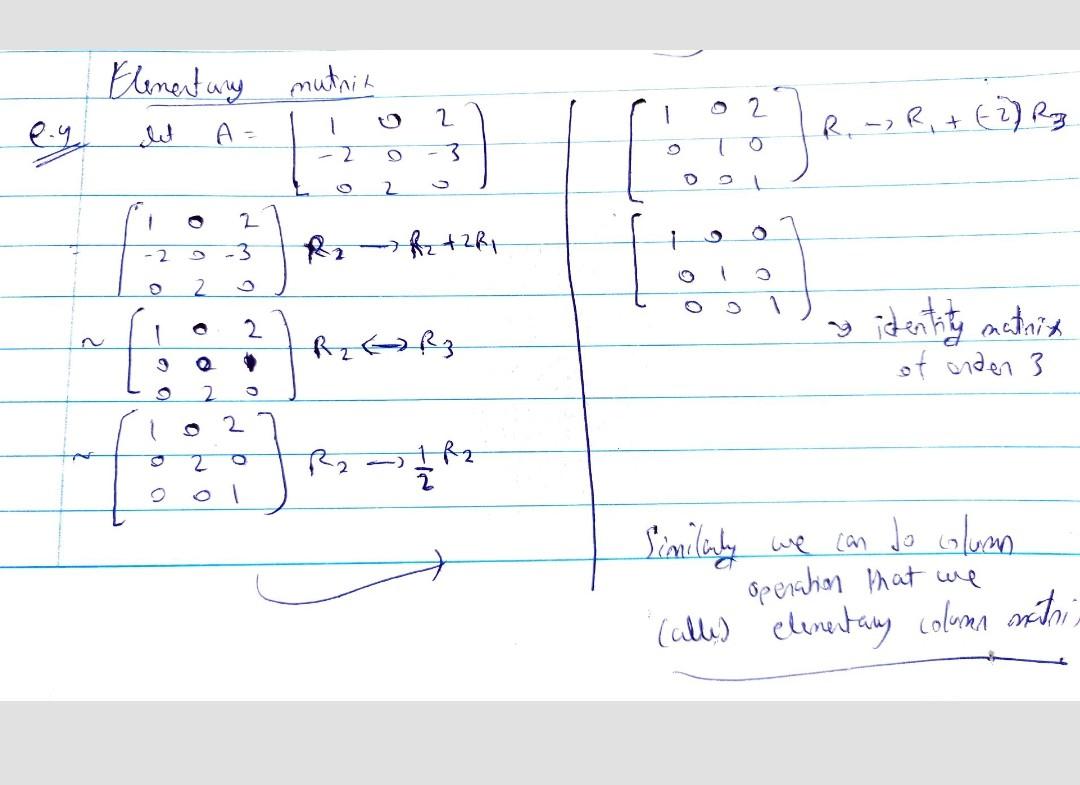 Elementary matrix
e.g let A = [ 1 0 2
-2 0 -3
0 2 0 ]
= [ 1 0 2
-2 0 -3
0 2 0 ] R2 → R2 + 2R1
~ [ 1 0 2
0 0 1
0 2 0 ] R2 ↔ R3
~ [ 1 0 2
0 2 0
0 0 1 ] R2 → 1/2 R2
[ 1 0 2
0 1 0
0 0 1 ] R1 → R1 + (-2) R3
[ 1 0 0
0 1 0
0 0 1 ]
→ identity matrix
of order 3
Similarly we can do column
operation that we
called elementary column matri